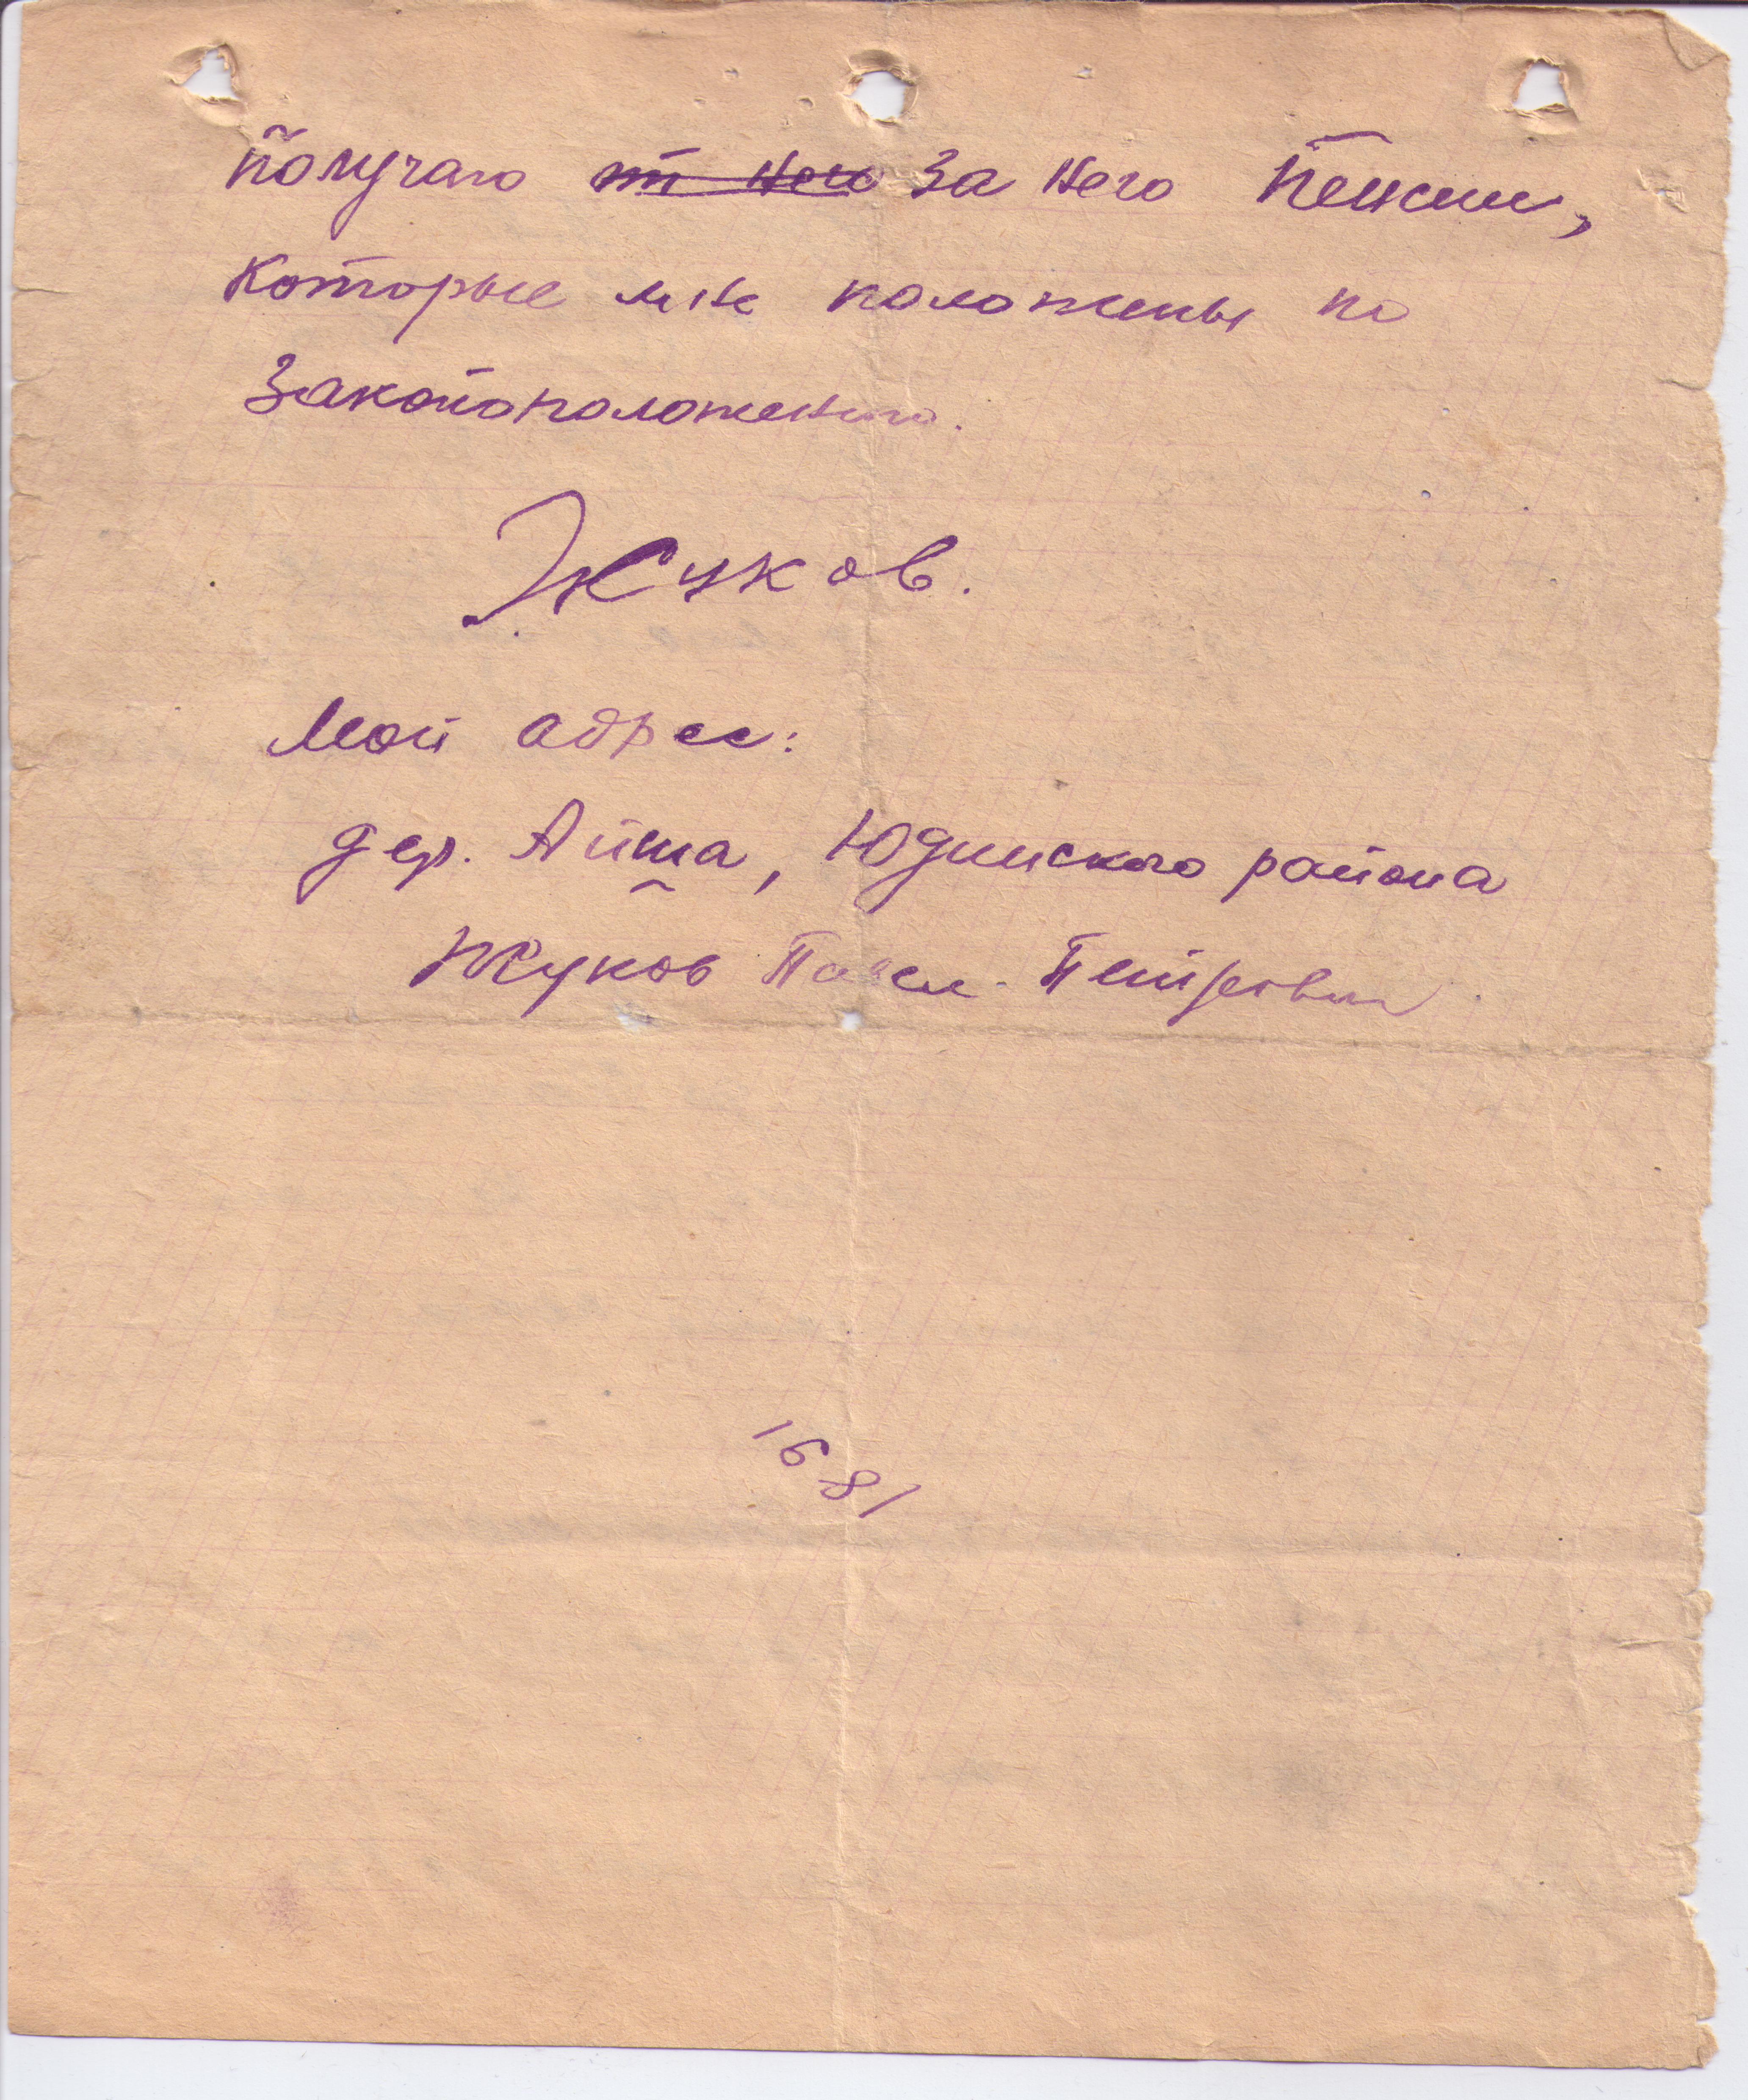 получаю от него за него пенсии,
которые мне положены по
законоположению.
Жуков.
Мой адрес:
дер. Айша, Юдинского района
Жуков Павел Петрович